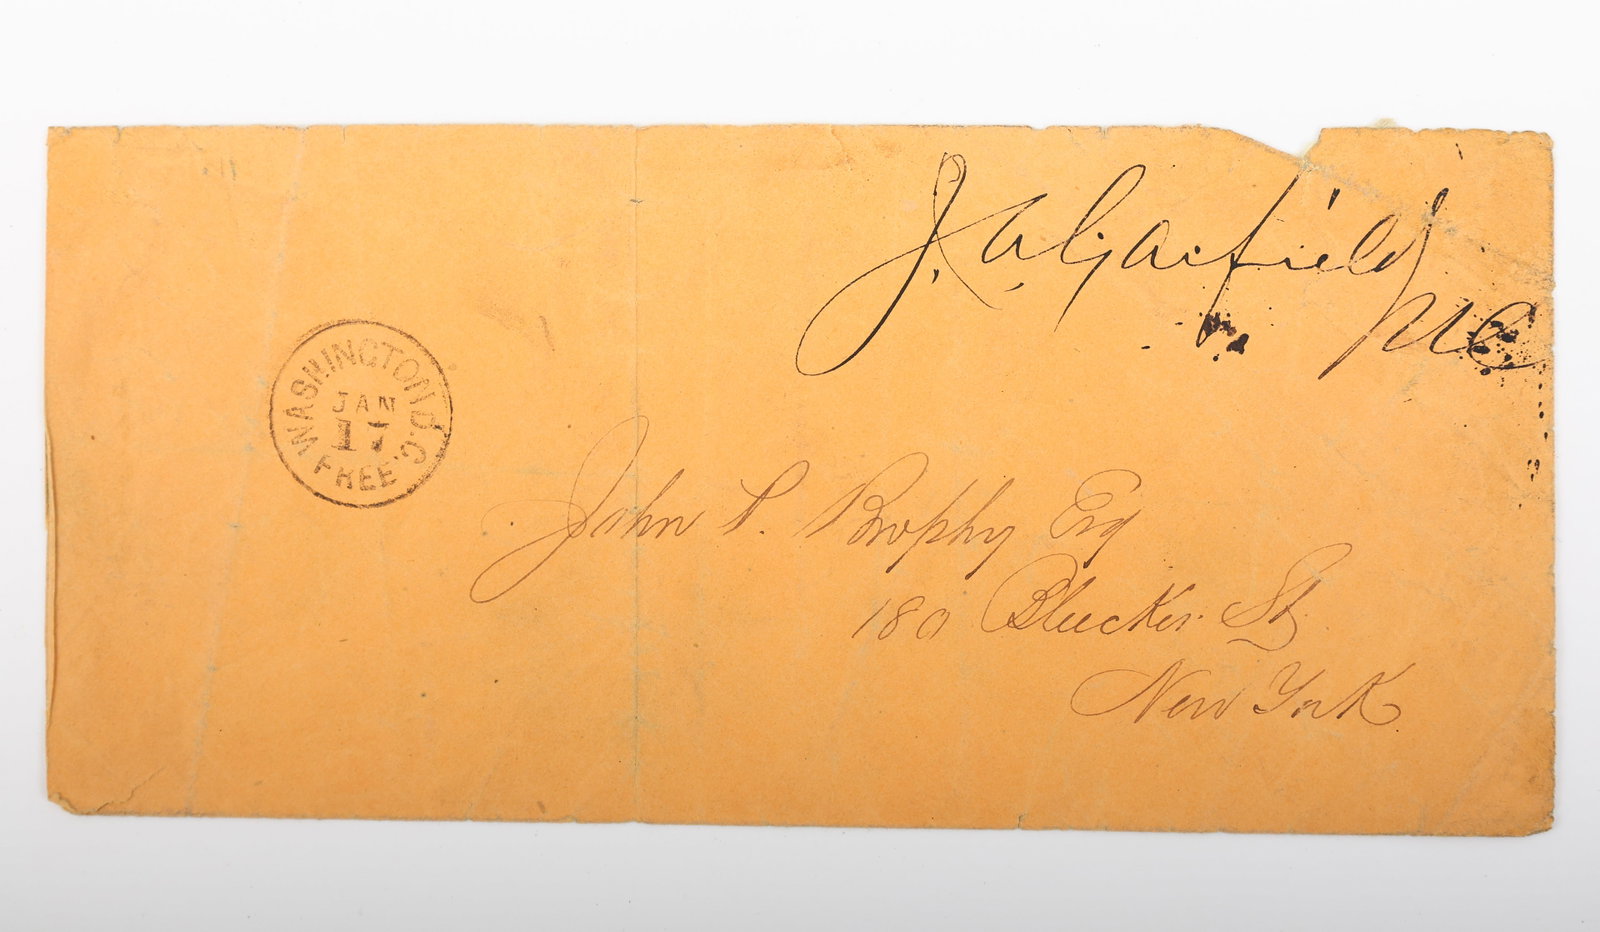 J. A. Garfield
M C
WASHINGTON D.C.
JAN
17
FREE
John P. Brophy Esq
180 Bleecker St.
New York